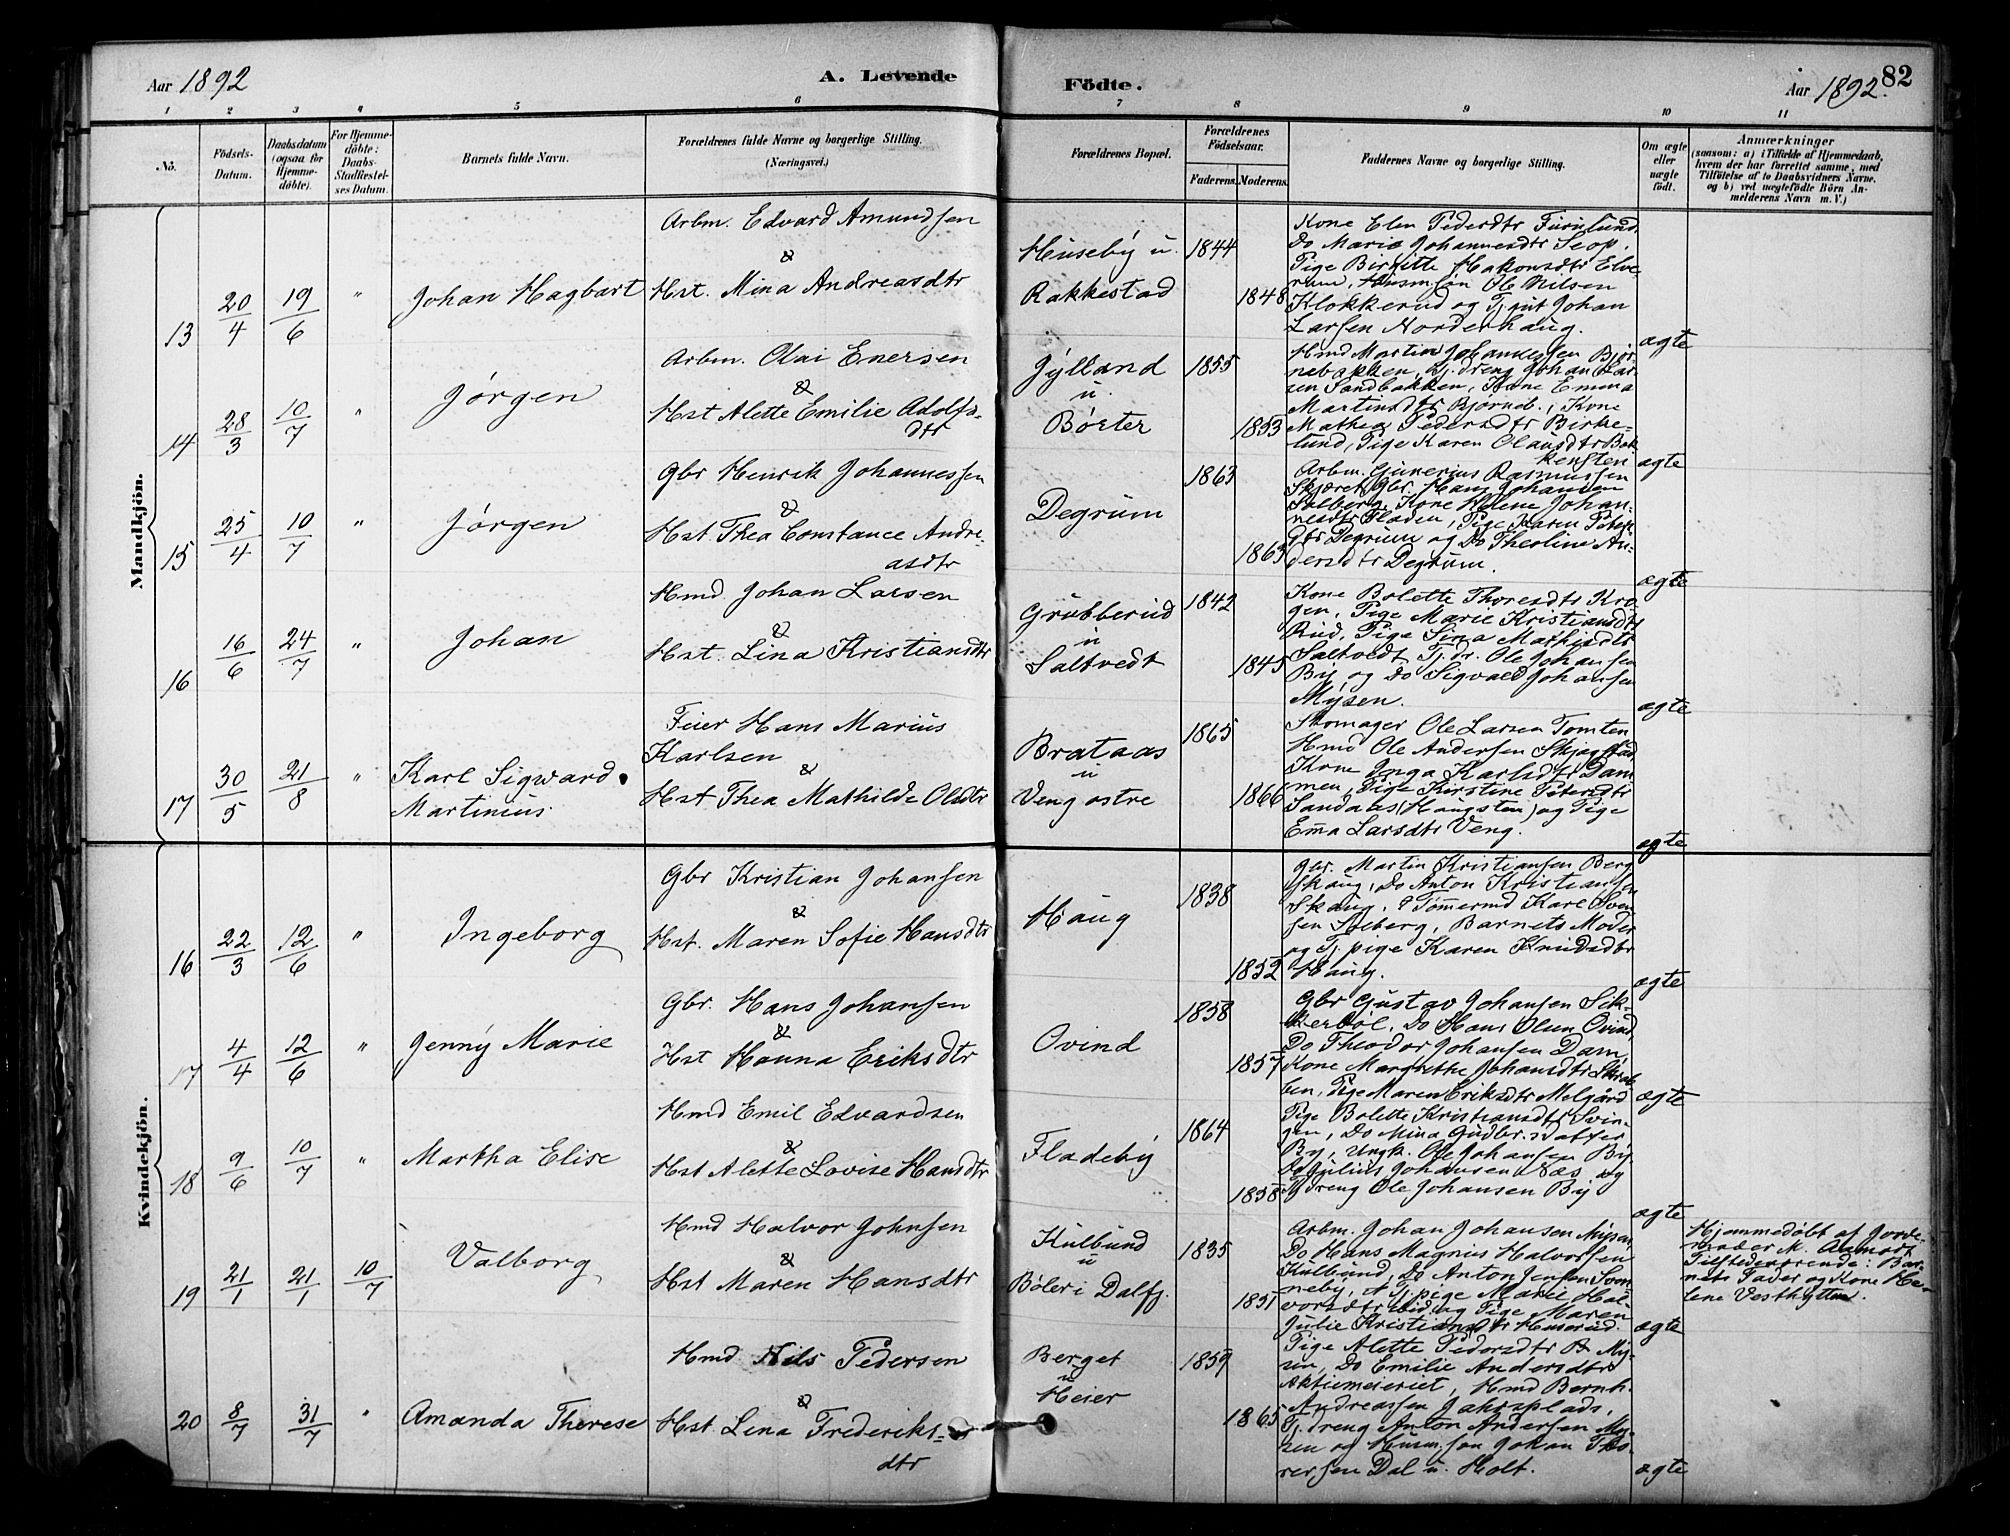 Aar 1892
A. Levende
Födte.
Aar 1892.
82
1 2 3 4 5 6 7 8 9 10 11
No.
Födsels-
Datum.
Daabsdatum
(ogsaa for
Hjemme-
döbte).
For Hjemme-
döbte:
Daabs-
Stadfæstel-
ses Datum.
Barnets fulde Navn.
Forældrenes fulde Navne og borgerlige Stilling.
(Næringsvei.)
Forældrenes Bopæl.
Forældrenes
Födselsaar.
Faderens. Moderens.
Faddernes Navne og borgerlige Stilling.
Om ægte
eller
uægte
født.
Anmærkninger
(saasom: a) i Tilfælde af Hjemmedaab,
hvem der har forrettet samme, med
Tilföielse af to Daabsvidners Navne.
og b) ved uægtefödte Börn An-
melderens Navn m. V.)
Mandkjön.
13 20/4 19/6 " Johan Hagbart
Arbm. Edvard Amundsen
&
Hst. Mina Andreasdtr
Huseby u.
Rakkestad
1844
1848
Kone Elen Pedersdtr Furulund,
Do Maria Johannesdtr Seop,
Pige Birgitte Hakonsdtr Elve
rum, Husm.søn Ole Nilsen
Klokkerud og Tj.gut Johan
Larsen Norderhaug.
ægte
14 28/3 10/7 " Jørgen
Arbm. Olai Enersen
&
Hst Alette Emilie Adolfs-
dtr
Jylland
u.
Børter
1855
1853
Hmd Martin Johannessen Bjør-
nebakken, Tj.dreng Johan Lar-
sen Sandbakken, Kone Emma
Martinsdtr Bjørneb., Kone
Mathea Pedersdtr Birke-
lund, Pige Karen Olausdtr Bak
kensten
ægte
15 25/4 10/7 " Jørgen
Gbr Henrik Johannessen
&
Hst Thea Constance Andre-
asdtr
Degrum
1863
1863
Arbm. Gunerius Rasmussen
Skjæret, Gbr. Hans Johansen
Solberg, Kone Helene Johan-
nesdtr Fladen, Pige Karen Peters
dtr Degrum og Do Theoline An-
dersdtr Degrum.
ægte
16 16/6 24/7 " Johan
Hmd. Johan Larsen
&
Hst. Lina Kristiansdtr
Grubberud
u
Saltvedt
1842
1845
Kone Bolette Thoresdtr Kro-
gen, Pige Marie Kristiansdtr
Rud, Pige Lina Mathisdtr
Saltvedt, Tj.dr. Ole Johansen
By og Do Sigvald Johansen
Mysen.
ægte
17 30/5 21/8 " Karl Sigward
Martinius
Feier Hans Marius
Karlsen
&
Hst Thea Mathilde Olsdtr
Brataas
u
Veng østre
1865
1866
Skomager Ole Larsen Tomten
Hmd Ole Andersen Skjægstad,
Kone Inga Karlsdtr Dam
men, Pige Kirstine Petersdtr
Sandaas (Haugsten) og Pige
Emma Larsdtr Veng.
ægte
Kvindekjön.
16 22/3 12/6 " Ingeborg
Gbr Kristian Johansen
&
Hst. Maren Sofie Hansdtr
Haug
1838
1852
Gbr. Martin Kristiansen Berg
skaug, Do Anton Kristiansen
Skaug, Tømmermd Karl Sven
sen Solberg, Barnets Moder
og Tj.pige Karen Knudsdtr
Haug.
ægte
17 4/4 12/6 " Jenny Marie
Gbr. Hans Johansen
&
Hst Hanna Eriksdtr
Ovind
1858
1857
Gbr Gustav Johansen Sik-
kerbøl, Do Hans Olsen Ovind,
Do Theodor Johansen Dam,
Kone Margrethe Johansdtr Skrab
ben, Pige Maren Eriksdtr Melgård
ægte
18 9/6 10/7 " Martha Elise
Hmd Emil Edvardsen
&
Hst Alette Lovise Hansdtr
Fladeby
1864
1858
Pige Bolette Kristiansdtr Svin-
gen, Do Mina Gudbr.datter
By, Ungk. Ole Johansen By
Do Julius Johansen Næs og
Tj.dreng Ole Johansen By
ægte
19 21/1 21/1 10/7 Valborg
Hmd Halvor Johnsen
&
Hst Maren Hansdtr
Kulbund
u
Böler i Dalfj.
1835
1851
Arbm. Johan Johansen Mysen,
Do Hans Magnus Halvorsen
Kulbund, Do Anton Jensen Som
neby, Tj.pige Marie Hal-
vorsdtr ibid, og Pige Maren
Julie Kristiansdtr Huserud.
ægte
Hjemmedöbt af Jorde-
moder M. Anmort
Tilstedeværende: Bar
nets Fader og Kone He-
lene Vesthytten.
20 8/7 31/7 " Amanda Therese
Hmd Nils Pedersen
&
Hst. Lina Frederiks-
dtr
Berget
u
Heier
1859
1865
Pige Alette Pedersdtr My-
sen, Do Emilie Andersdtr
Aktiemeieriet, Hmd Bernh.
Andreassen Jahrsplads,
Tj.dreng Anton Andersen My-
sen og Husm.søn Johan Tho
rersen Dal u. Holt.
ægte